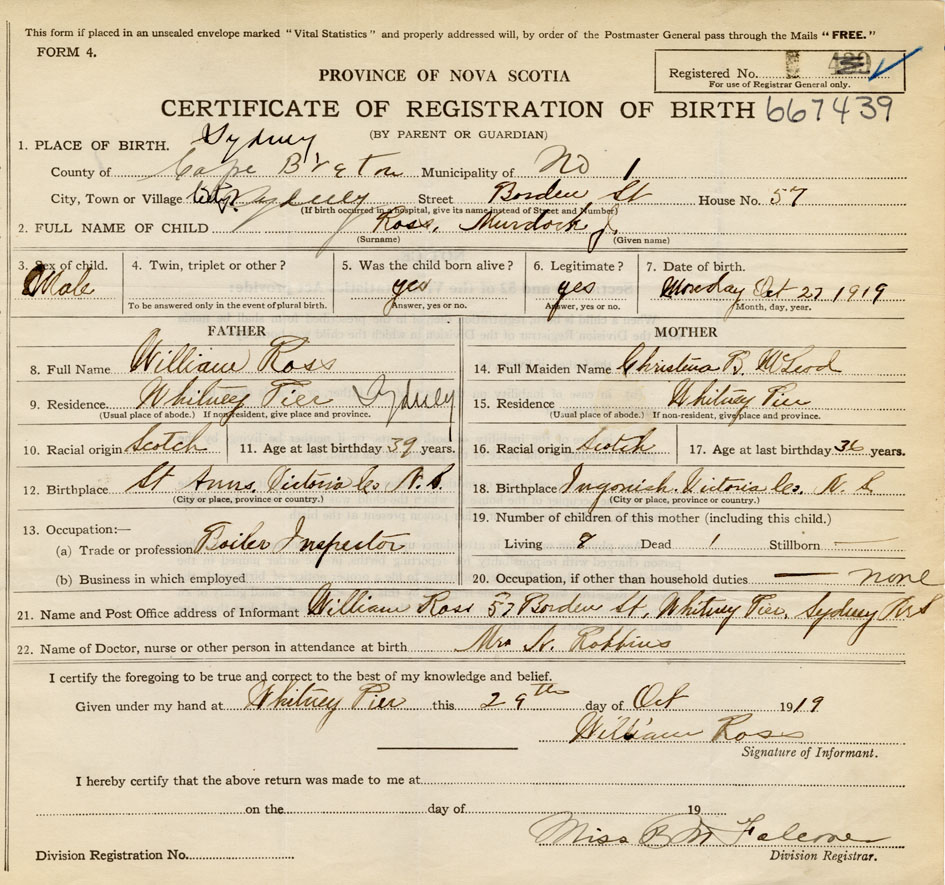 This form if placed in an unsealed envelope marked "Vital Statistics" and properly addressed will, by order of the Postmaster General pass through the Mails "FREE."
FORM 4.
Registered No.
For use of Registrar General only.
PROVINCE OF NOVA SCOTIA
CERTIFICATE OF REGISTRATION OF BIRTH 667439
(BY PARENT OR GUARDIAN)
1. PLACE OF BIRTH. Sydney
County of Cape Breton Municipality of No 1
City, Town or Village City Sydney Street Borden St House No. 57
(If birth occurred in a hospital, give its name instead of Street and Number)
2. FULL NAME OF CHILD Ross, Murdock J.
(Surname) (Given name)
3. Sex of child. 4. Twin, triplet or other? 5. Was the child born alive? 6. Legitimate? 7. Date of birth.
Male yes yes Monday Oct 27 1919
To be answered only in the event of plural birth. Answer, yes or no. Answer, yes or no. Month, day, year.
FATHER MOTHER
8. Full Name William Ross 14. Full Maiden Name Christina B. McLeod
9. Residence Whitney Pier Sydney 15. Residence Whitney Pier
(Usual place of abode.) If non-resident, give place and province. (Usual place of abode.) If non-resident, give place and province.
10. Racial origin Scotch 11. Age at last birthday 39 years. 16. Racial origin Scotch 17. Age at last birthday 36 years.
12. Birthplace St Anns, Victoria Co. N.S. 18. Birthplace Ingonish, Victoria Co. N.S
(City or place, province or country.) (City or place, province or country.)
13. Occupation:— 19. Number of children of this mother (including this child.)
(a) Trade or profession Boiler Inspector Living 8 Dead 1 Stillborn —
(b) Business in which employed 20. Occupation, if other than household duties — none
21. Name and Post Office address of Informant William Ross 57 Borden St, Whitney Pier, Sydney N.S
22. Name of Doctor, nurse or other person in attendance at birth Mrs Robbins
I certify the foregoing to be true and correct to the best of my knowledge and belief.
Given under my hand at Whitney Pier this 29th day of Oct 1919
William Ross
Signature of Informant.
I hereby certify that the above return was made to me at
on the day of 19
Miss B M Falconer
Division Registration No. Division Registrar.